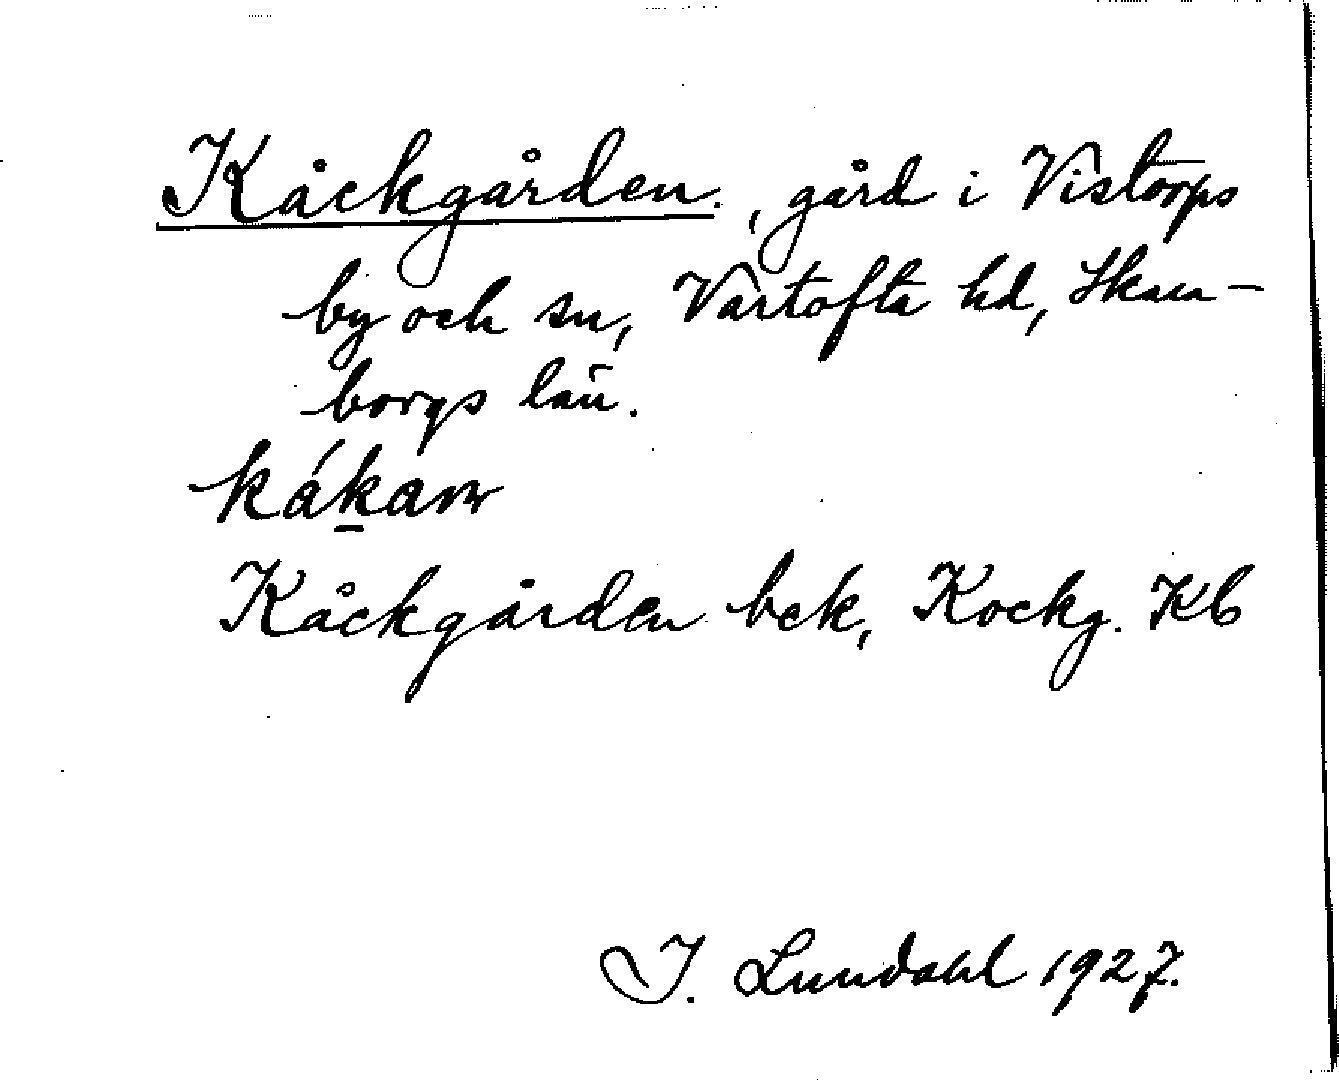 Kåckgården., gård i Vistorps
by och sn, Vartofta hd, Skara-
borgs län.
kákaɴ
Kåckgården bek, Kockg. Kb
I. Lundahl 1927.